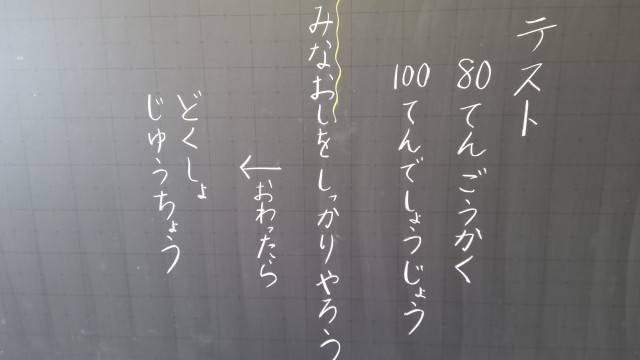 テスト
80てんごうかく
100てんでしょうじょう
みなおしをしっかりやろう
おわったら
←
どくしょ
じゆうちょう